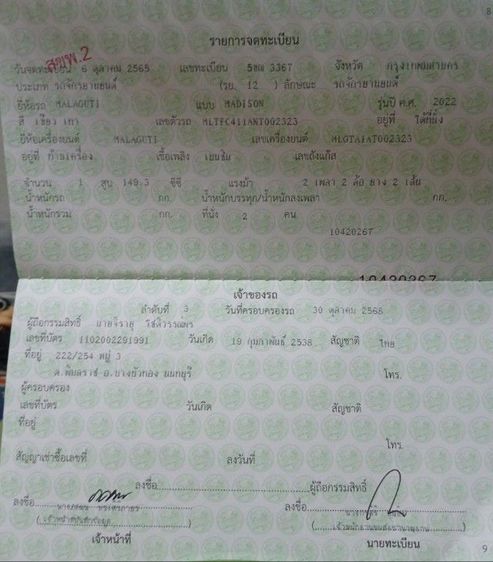 8
รายการจดทะเบียน
สขพ.2
วันจดทะเบียน 6 ตุลาคม 2565 เลขทะเบียน 5ขณ 3367 จังหวัด กรุงเทพมหานคร
ประเภท รถจักรยานยนต์ (รย. 12 ) ลักษณะ รถจักรยานยนต์
ยี่ห้อรถ MALAGUTI แบบ MADISON รุ่นปี ค.ศ. 2022
สี เขียว เทา เลขตัวรถ MLTPC411ANT002323 อยู่ที่ ใต้ที่นั่ง
ยี่ห้อเครื่องยนต์ MALAGUTI เลขเครื่องยนต์ MLGTA1AT002323
อยู่ที่ ท้ายเครื่อง เชื้อเพลิง เบนซิน เลขถังแก๊ส
จำนวน 1 สูบ 149.3 ซีซี แรงม้า 2 เพลา 2 ล้อ ยาง 2 เส้น
น้ำหนักรถ กก. น้ำหนักบรรทุก/น้ำหนักลงเพลา กก.
น้ำหนักรวม กก. ที่นั่ง 2 คน
10420267
10420267
เจ้าของรถ
ลำดับที่ 3 วันที่ครอบครองรถ 30 ตุลาคม 2568
ผู้ถือกรรมสิทธิ์ นายจิรายุ
เลขที่บัตร 1102002291091 วันเกิด 19 กุมภาพันธ์ 2538 สัญชาติ ไทย
ที่อยู่ 222/254 หมู่ 3
ต.พิมลราช อ.บางบัวทอง นนทบุรี โทร.
ผู้ครอบครอง
เลขที่บัตร วันเกิด สัญชาติ
ที่อยู่
โทร.
สัญญาเช่าซื้อเลขที่ ลงวันที่
ลงชื่อ ผู้ถือกรรมสิทธิ์
ลงชื่อ ลงชื่อ
เจ้าหน้าที่ นายทะเบียน
9